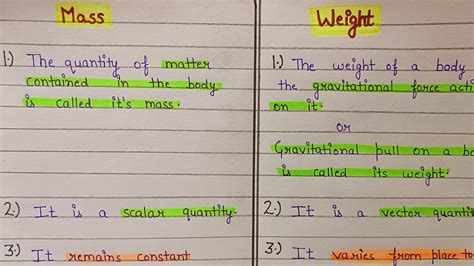 Mass
1.) The quantity of matter
contained in the body
is called it's mass.
2.) It is a scalar quantity.
3.) It remains constant
Weight
1.) The weight of a body
the gravitational force acti
on it.
or
Gravitational pull on a bo
is called its weight.
2.) It is a vector quantit
3.) It varies from place t